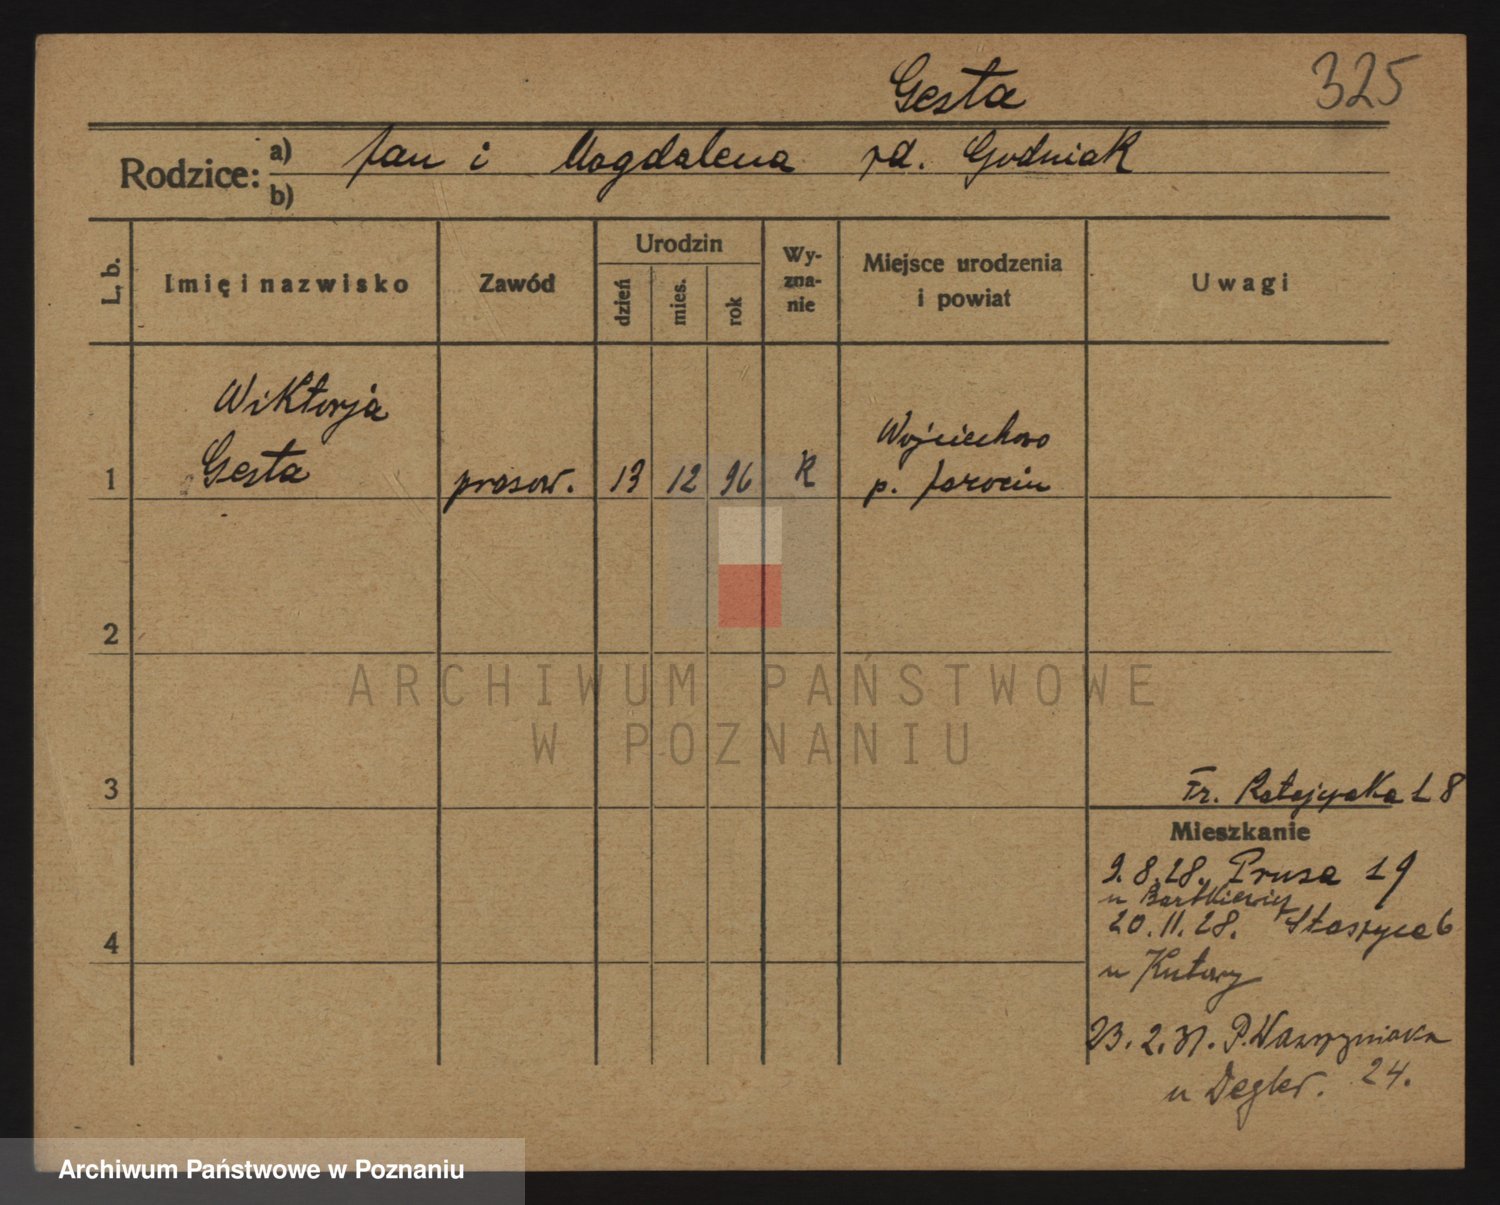 Gesta 325
Rodzice: a) Jan i Magdalena rd. Godniak
b)
L. b. Imię i nazwisko Zawód Urodzin dzień mies. rok Wy-zna-nie Miejsce urodzenia i powiat Uwagi
Wiktorja
Gesta
1 prasow. 13 12 96 K Wojciechowo
p. Jarocin
2
ARCHIWUM PAŃSTWOWE
W POZNANIU
3
Fr. Ratajczaka 18
Mieszkanie
9.8.28. Prusa 19
u Bartkiewicz
20.11.28. Staszyca 6
4
u Kutowy
23.2.31. P. Wawrzyniaka
24.
u Degler.
Archiwum Państwowe w Poznaniu